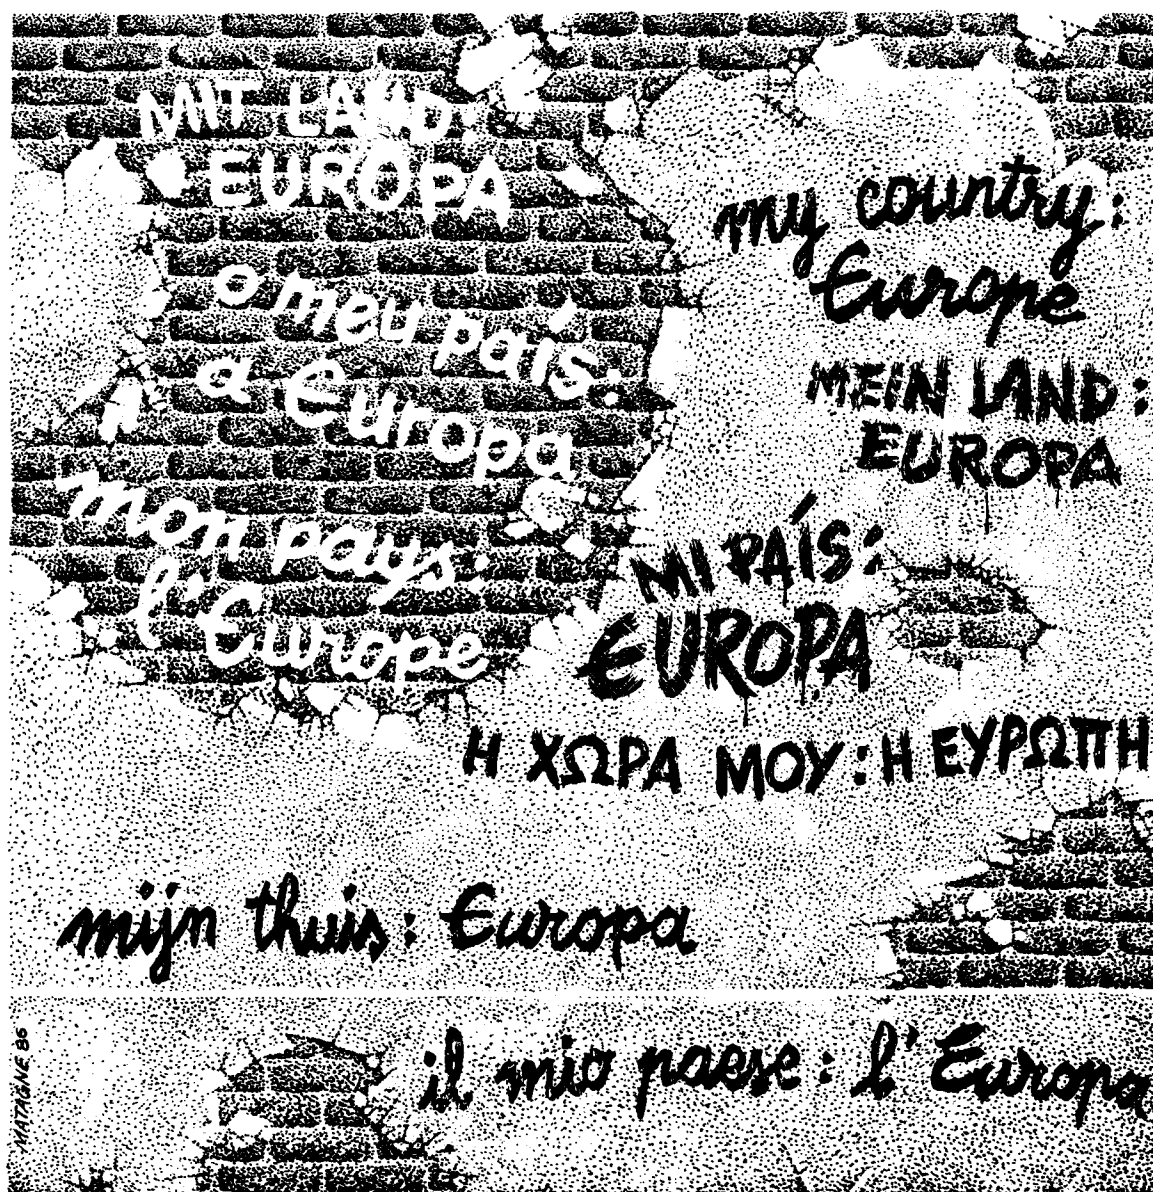 MIT LAND:
EUROPA
o meu país:
a Europa
mon pays:
l'Europe
my country:
Europe
MEIN LAND:
EUROPA
MI PAÍS:
EUROPA
Η ΧΩΡΑ ΜΟΥ: Η ΕΥΡΩΠΗ
mijn thuis: Europa
il mio paese: l'Europa
MATAGNE 86